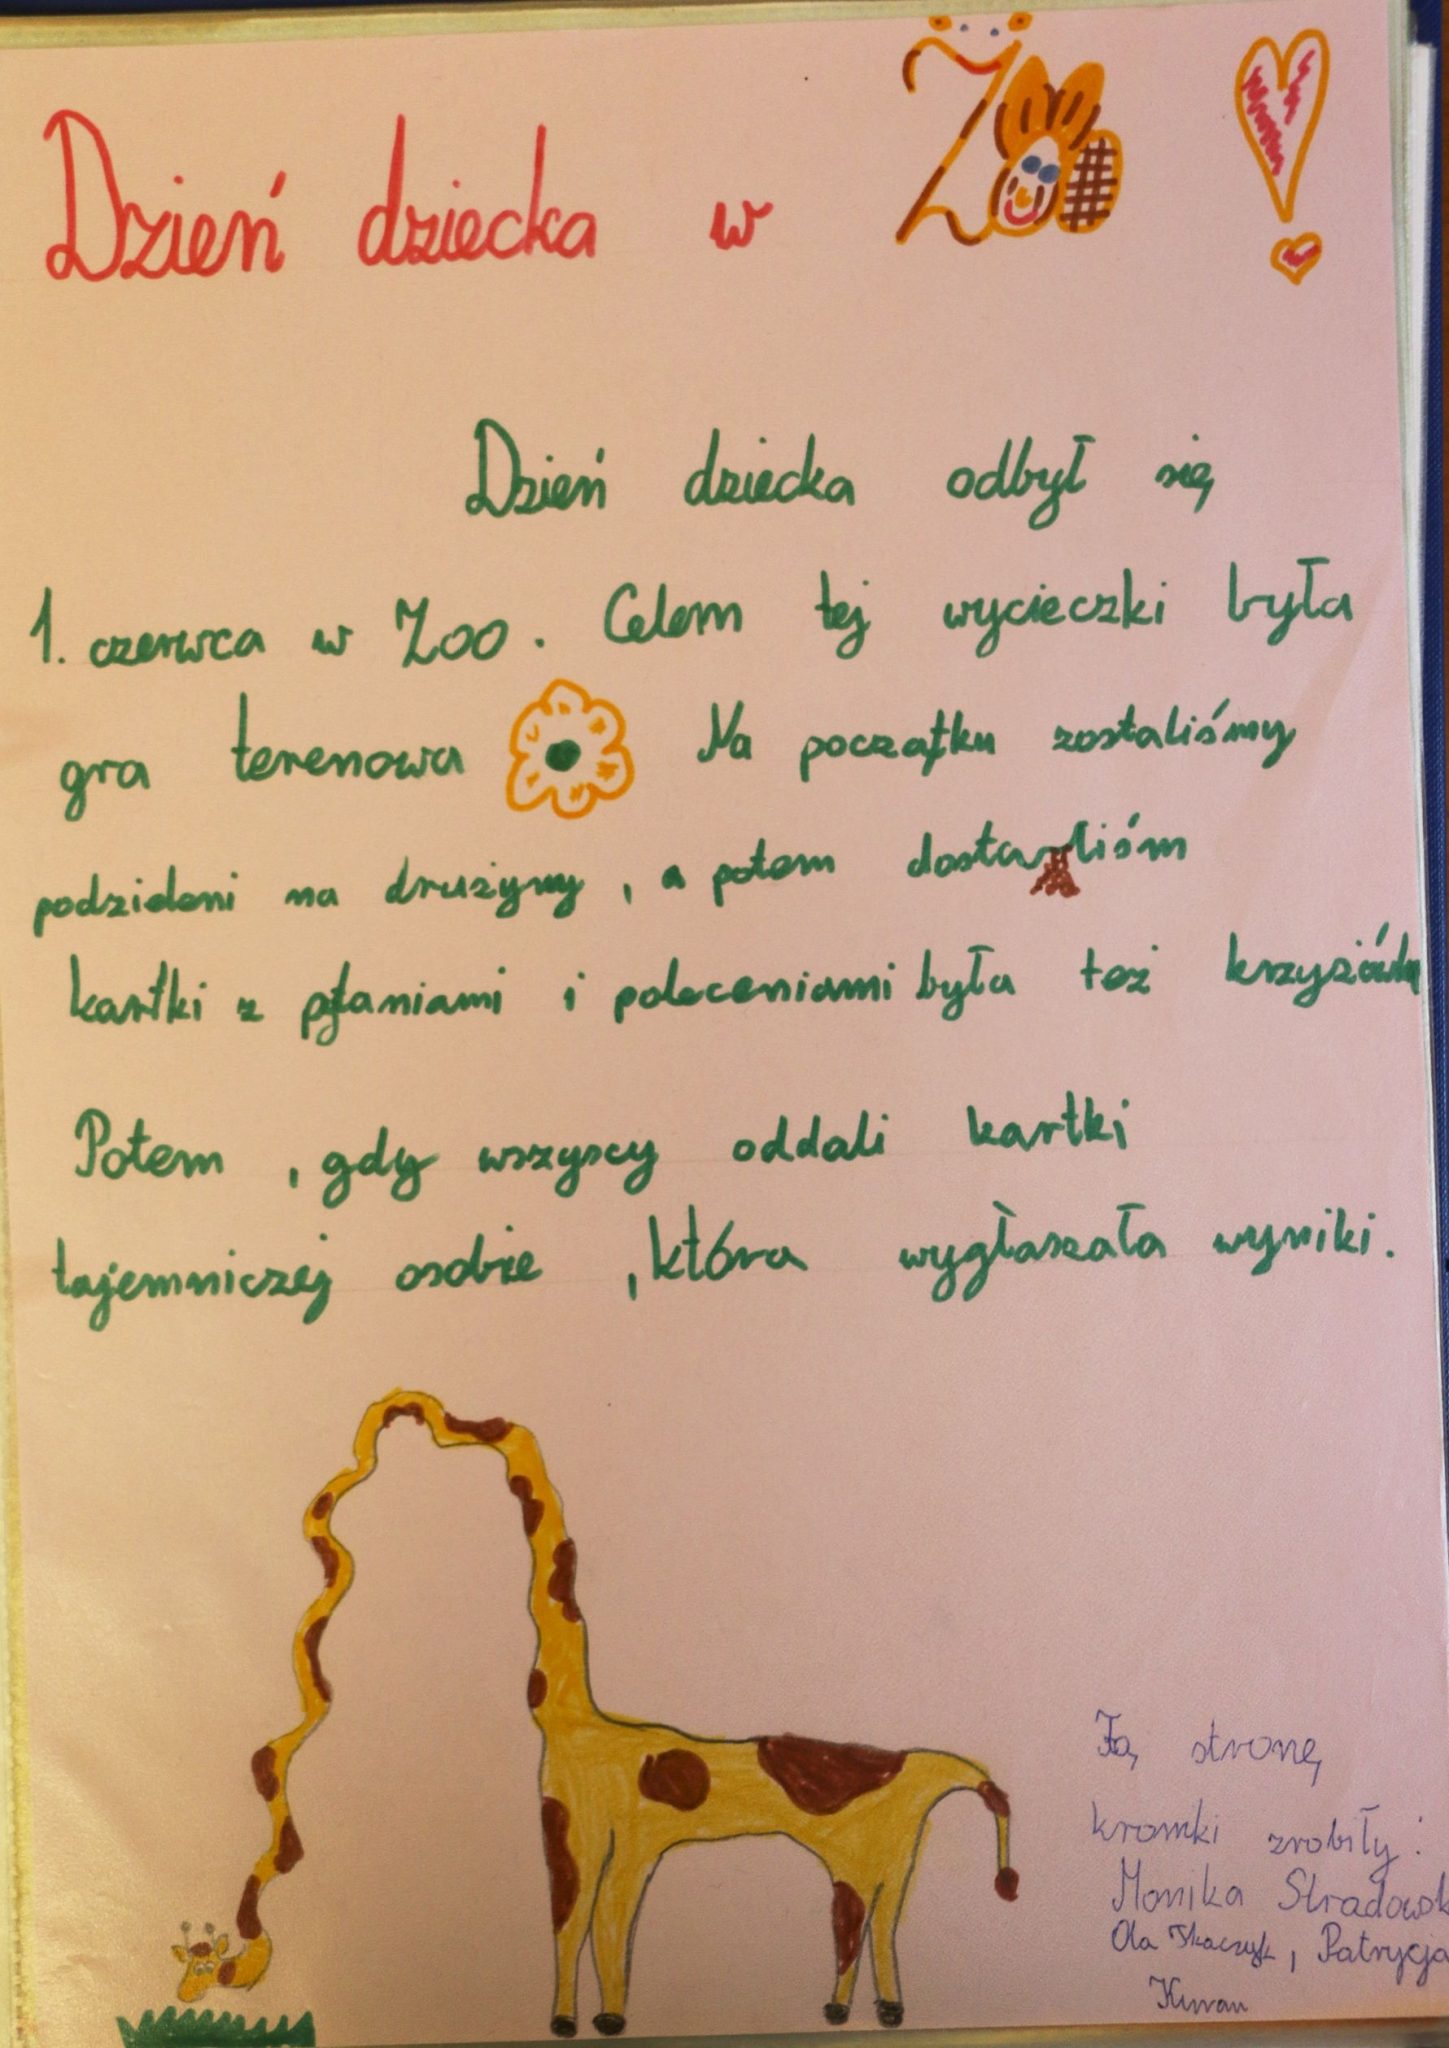 Dzień dziecka w Zoo!
Dzień dziecka odbył się
1. czerwca w Zoo. Celem tej wycieczki była
gra terenowa Na początku zostaliśmy
podzieleni na drużyny, a potem dostaliśm
kartki z pytaniami i poleceniami była też krzyżówka
Potem, gdy wszyscy oddali kartki
tajemniczej osobie, która wygłaszała wyniki.
Tą stronę
kroniki zrobiły:
Monika Stradowsk
Ola Tkaczyk, Patrycja